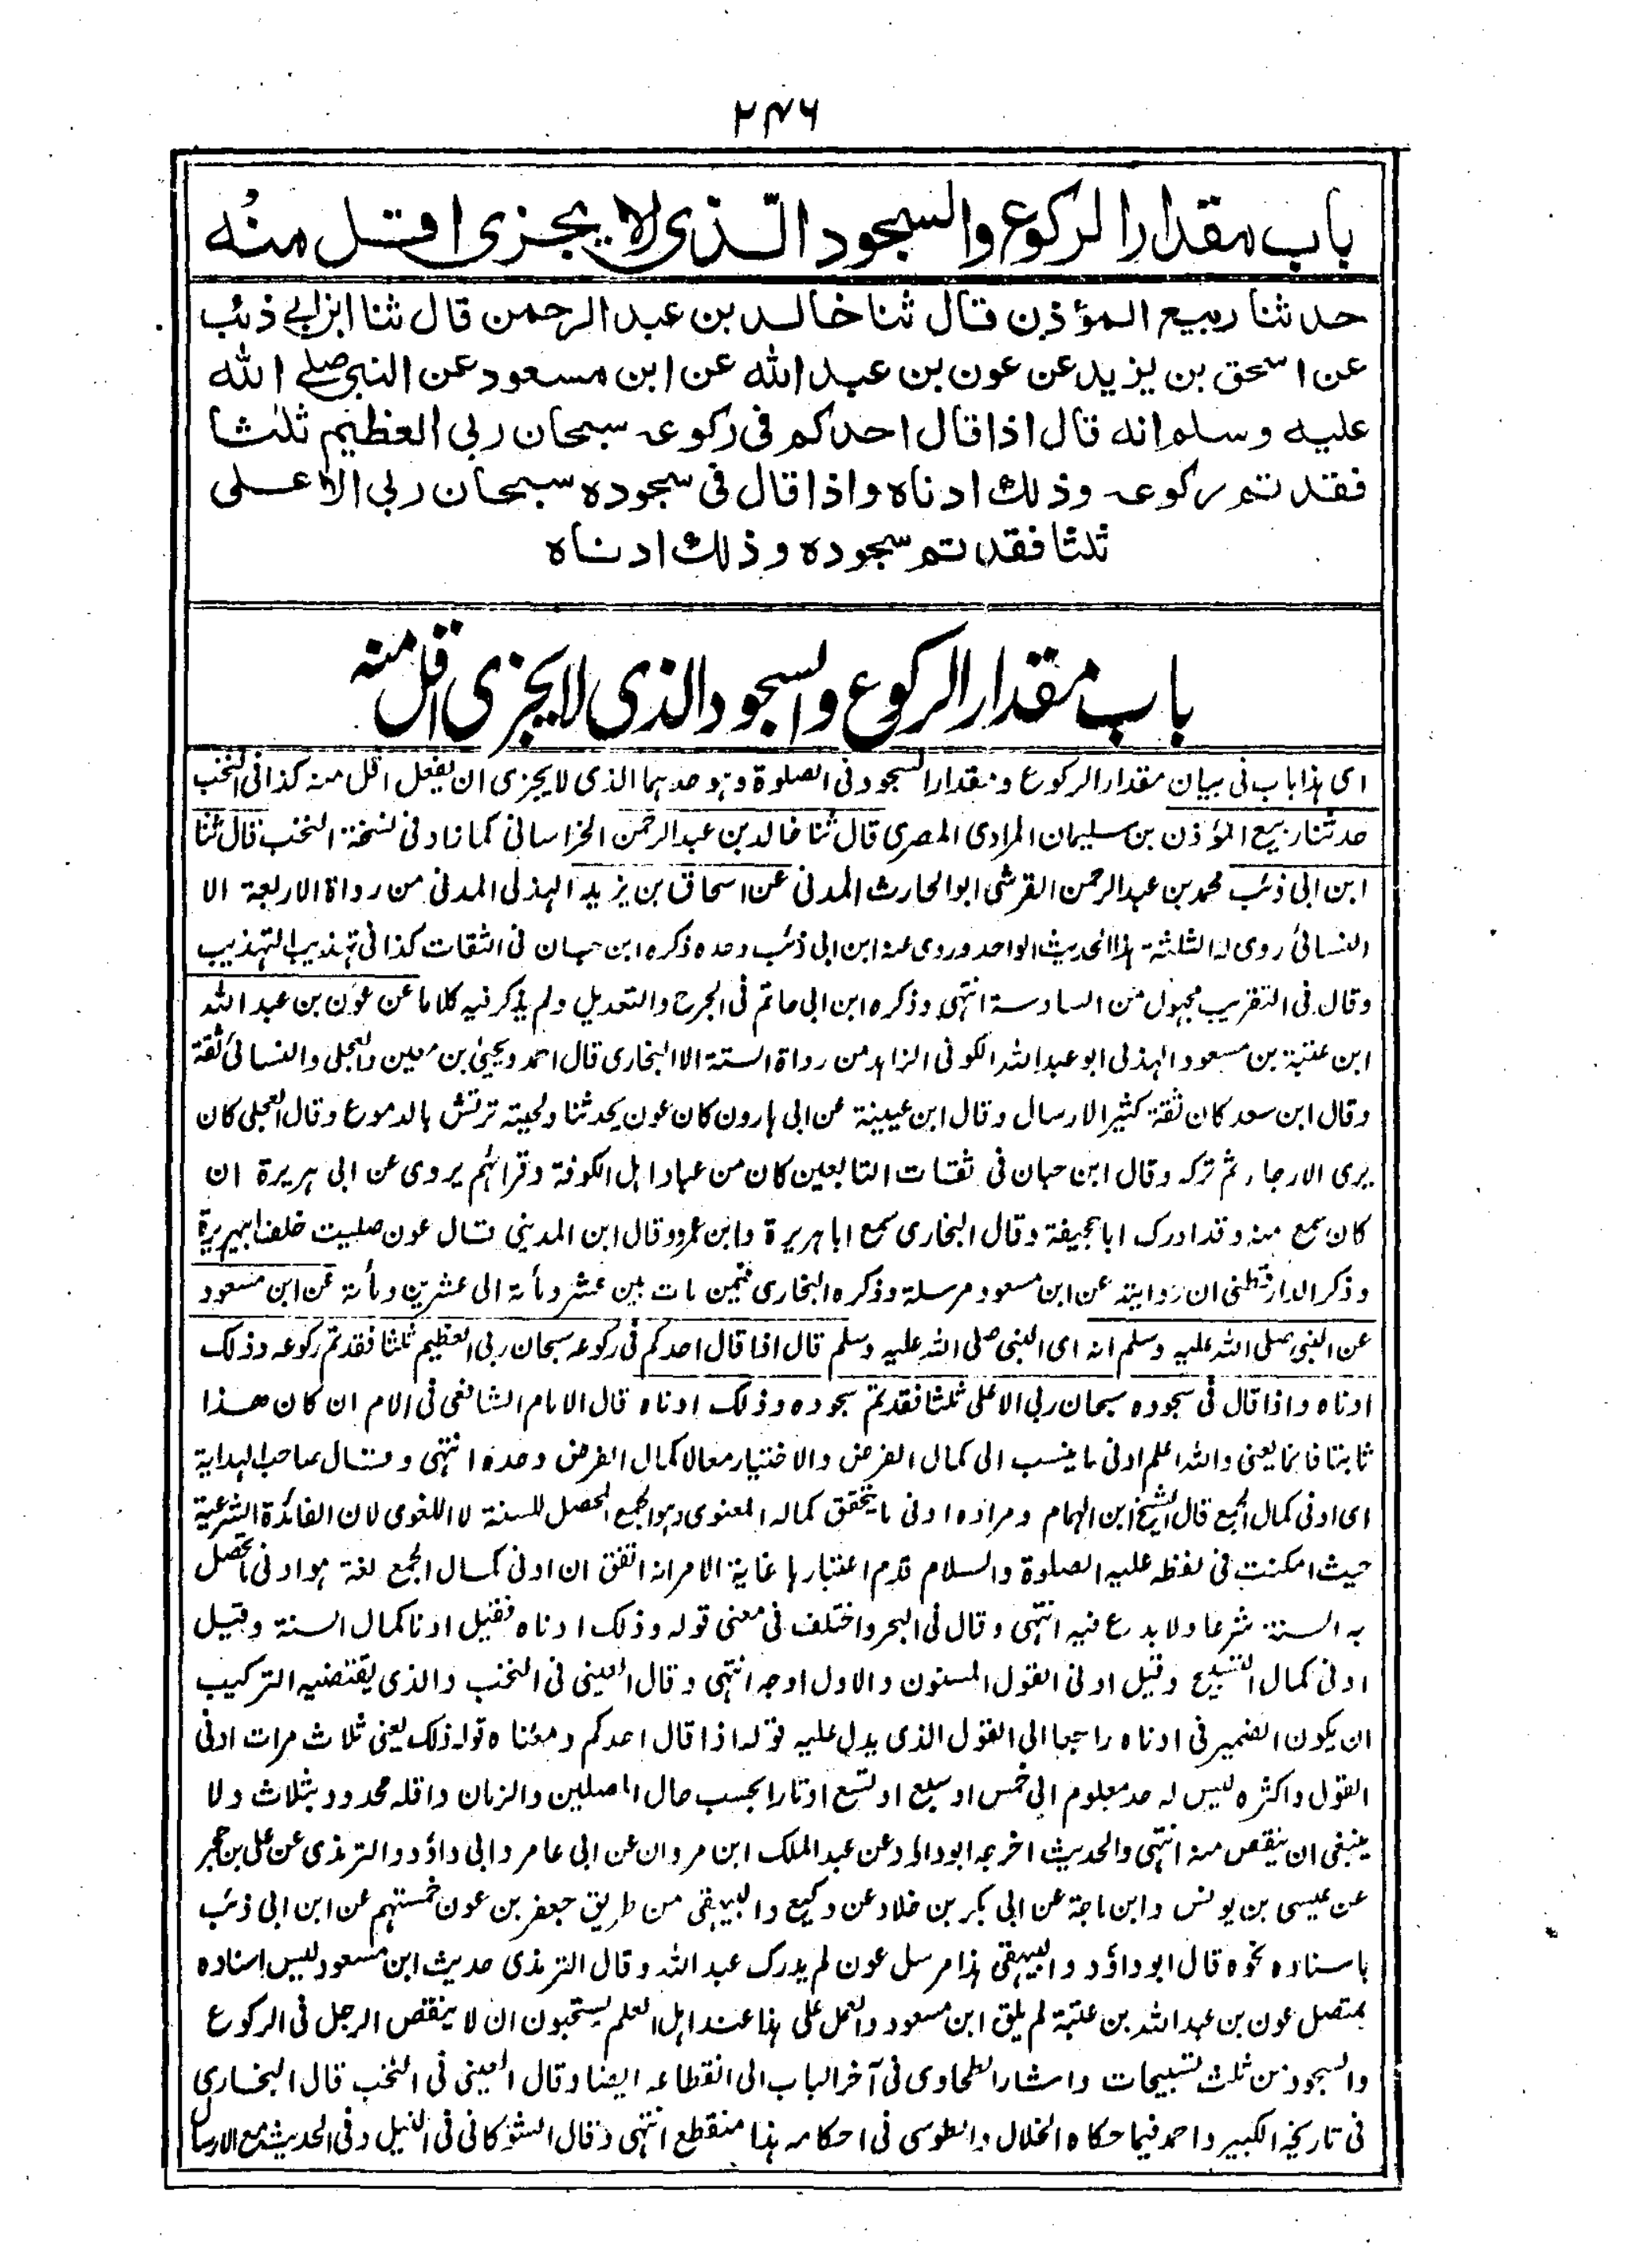 ۲۴۶
باب مقدار الركوع والسجود الّذى لا يجزى اقل منه
حدثنا ربيع المؤذن قال ثنا خالد بن عبد الرحمن قال ثنا ابن ابي ذئب
عن اسحق بن يزيد عن عون بن عبد الله عن ابن مسعود عن النبي صلے الله
عليه وسلم انه قال اذا قال احدكم فى ركوعه سبحان ربى العظيم ثلثا
فقد تم ركوعه وذلك ادناه واذا قال فى سجوده سبحان ربى الاعلى
ثلثا فقد تم سجوده وذلك ادناه
باب مقدار الركوع والسجود الذى لا يجزى اقل منه
اى هذا باب فى بيان مقدار الركوع ومقدار السجود فى الصلوة وهو حدهما الذى لا يجزى ان يفعل اقل منه كذا فى النخب
حدثنا ربيع المؤذن بن سليمان المرادى المصرى قال ثنا خالد بن عبد الرحمن الخراسانى كما زاد فى نسخة النخب قال ثنا
ابن ابى ذئب محمد بن عبد الرحمن القرشى ابو الحارث المدنى عن اسحاق بن يزيد الهذلى المدنى من رواة الاربعة الا
النسائى روى له الثلثة هذا الحديث الواحد وروى عنه ابن ابى ذئب وحده ذكره ابن حبان فى الثقات كذا فى تهذيب التهذيب
وقال فى التقريب مجهول من السادسة انتهى وذكره ابن ابى حاتم فى الجرح والتعديل ولم يذكر فيه كلاما عن عون بن عبد الله
ابن عتبة بن مسعود الهذلى ابو عبد الله الكوفى الزاهد من رواة الستة الا البخارى قال احمد ويحيىٰ بن معين والعجلى والنسائى ثقة
وقال ابن سعد كان ثقة كثير الارسال وقال ابن عيينة عن ابى هارون كان عون يحدثنا ولحيته ترتش بالدموع وقال العجلى كان
يرى الارجاء ثم تركه وقال ابن حبان فى ثقات التابعين كان من عباد اهل الكوفة وقرائهم يروى عن ابى هريرة ان
كان سمع منه وقد ادرك ابا جحيفة وقال البخارى سمع ابا هريرة وابن عمرو وقال ابن المدينى قال عون صليت خلف ابيهريرة
وذكر الدارقطنى ان روايته عن ابن مسعود مرسلة وذكره البخارى فيمن مات بين عشر ومأة الى عشرين ومأة عن ابن مسعود
عن النبى صلى الله عليه وسلم انه اى النبى صلى الله عليه وسلم قال اذا قال احدكم فى ركوعه سبحان ربى العظيم ثلثا فقد تم ركوعه وذلك
ادناه واذا قال فى سجوده سبحان ربى الاعلى ثلثا فقد تم سجوده وذلك ادناه قال الامام الشافعى فى الام ان كان هذا
ثابتا فانما يعنى والله اعلم ادنى ما ينسب الى كمال الفرض والاختيار معا لا كمال الفرض وحده انتهى وقال صاحب الهداية
اى ادنى كمال الجمع قال الشيخ ابن الهمام ومراده ادنى ما يتحقق كماله المعنوى وهو الجمع المحصل للسنة لا اللغوى لان الفائدة الشرعية
حيث امكنت فى لفظه عليه الصلوة والسلام قدم اعتبارها غاية الامر انه اتفق ان ادنى كمال الجمع لغة هو ادنى ما تحصل
به السنة شرعا ولا بدع فيه انتهى وقال فى البحر واختلف فى معنى قوله وذلك ادناه فقيل ادنا كمال السنة وقيل
ادنى كمال التسبيح وقيل ادنى القول المسنون والاول اوجه انتهى وقال العينى فى النخب والذى يقتضيه التركيب
ان يكون الضمير فى ادناه راجعا الى القول الذى يدل عليه قوله اذا قال احدكم ومعناه قوله ذلك يعنى ثلاث مرات ادنى
القول واكثره ليس له حد معلوم الى خمس او سبع او تسع اوتارا بحسب حال المصلين والزمان واقله محدود بثلاث ولا
ينبغى ان ينقص منه انتهى والحديث اخرجه ابو داؤد عن عبد الملك ابن مروان عن ابى عامر وابى داؤد والترمذى عن على بن حجر
عن عيسى بن يونس وابن ماجة عن ابى بكر بن خلاد عن وكيع والبيهقى من طريق جعفر بن عون خمستهم عن ابن ابى ذئب
باسناده نحوه قال ابو داؤد والبيهقى هذا مرسل عون لم يدرك عبد الله وقال الترمذى حديث ابن مسعود ليس اسناده
بمتصل عون بن عبد الله بن عتبة لم يلق ابن مسعود والعمل على هذا عند اهل العلم يستحبون ان لا ينقص الرجل فى الركوع
والسجود من ثلث تسبيحات واشار الطحاوى فى آخر الباب الى انقطاعه ايضا وقال العينى فى النخب قال البخارى
فى تاريخه الكبير واحمد فيما حكاه الخلال والطوسى فى احكامه هذا منقطع انتهى وقال الشوكانى فى النيل وفى الحديث مع الارسال